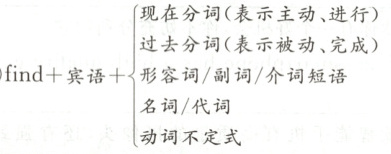 现在分词(表示主动、进行)
过去分词(表示被动、完成)
)find+宾语+{形容词/副词/介词短语
名词/代词
动词不定式